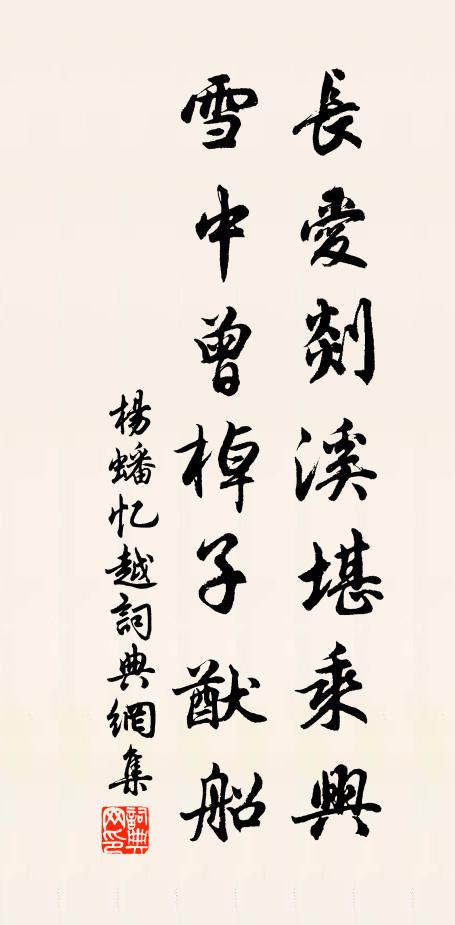 長愛剡溪堪乘興
雪中曾棹子猷船
楊蟠忆越詞典網集
詞典網印